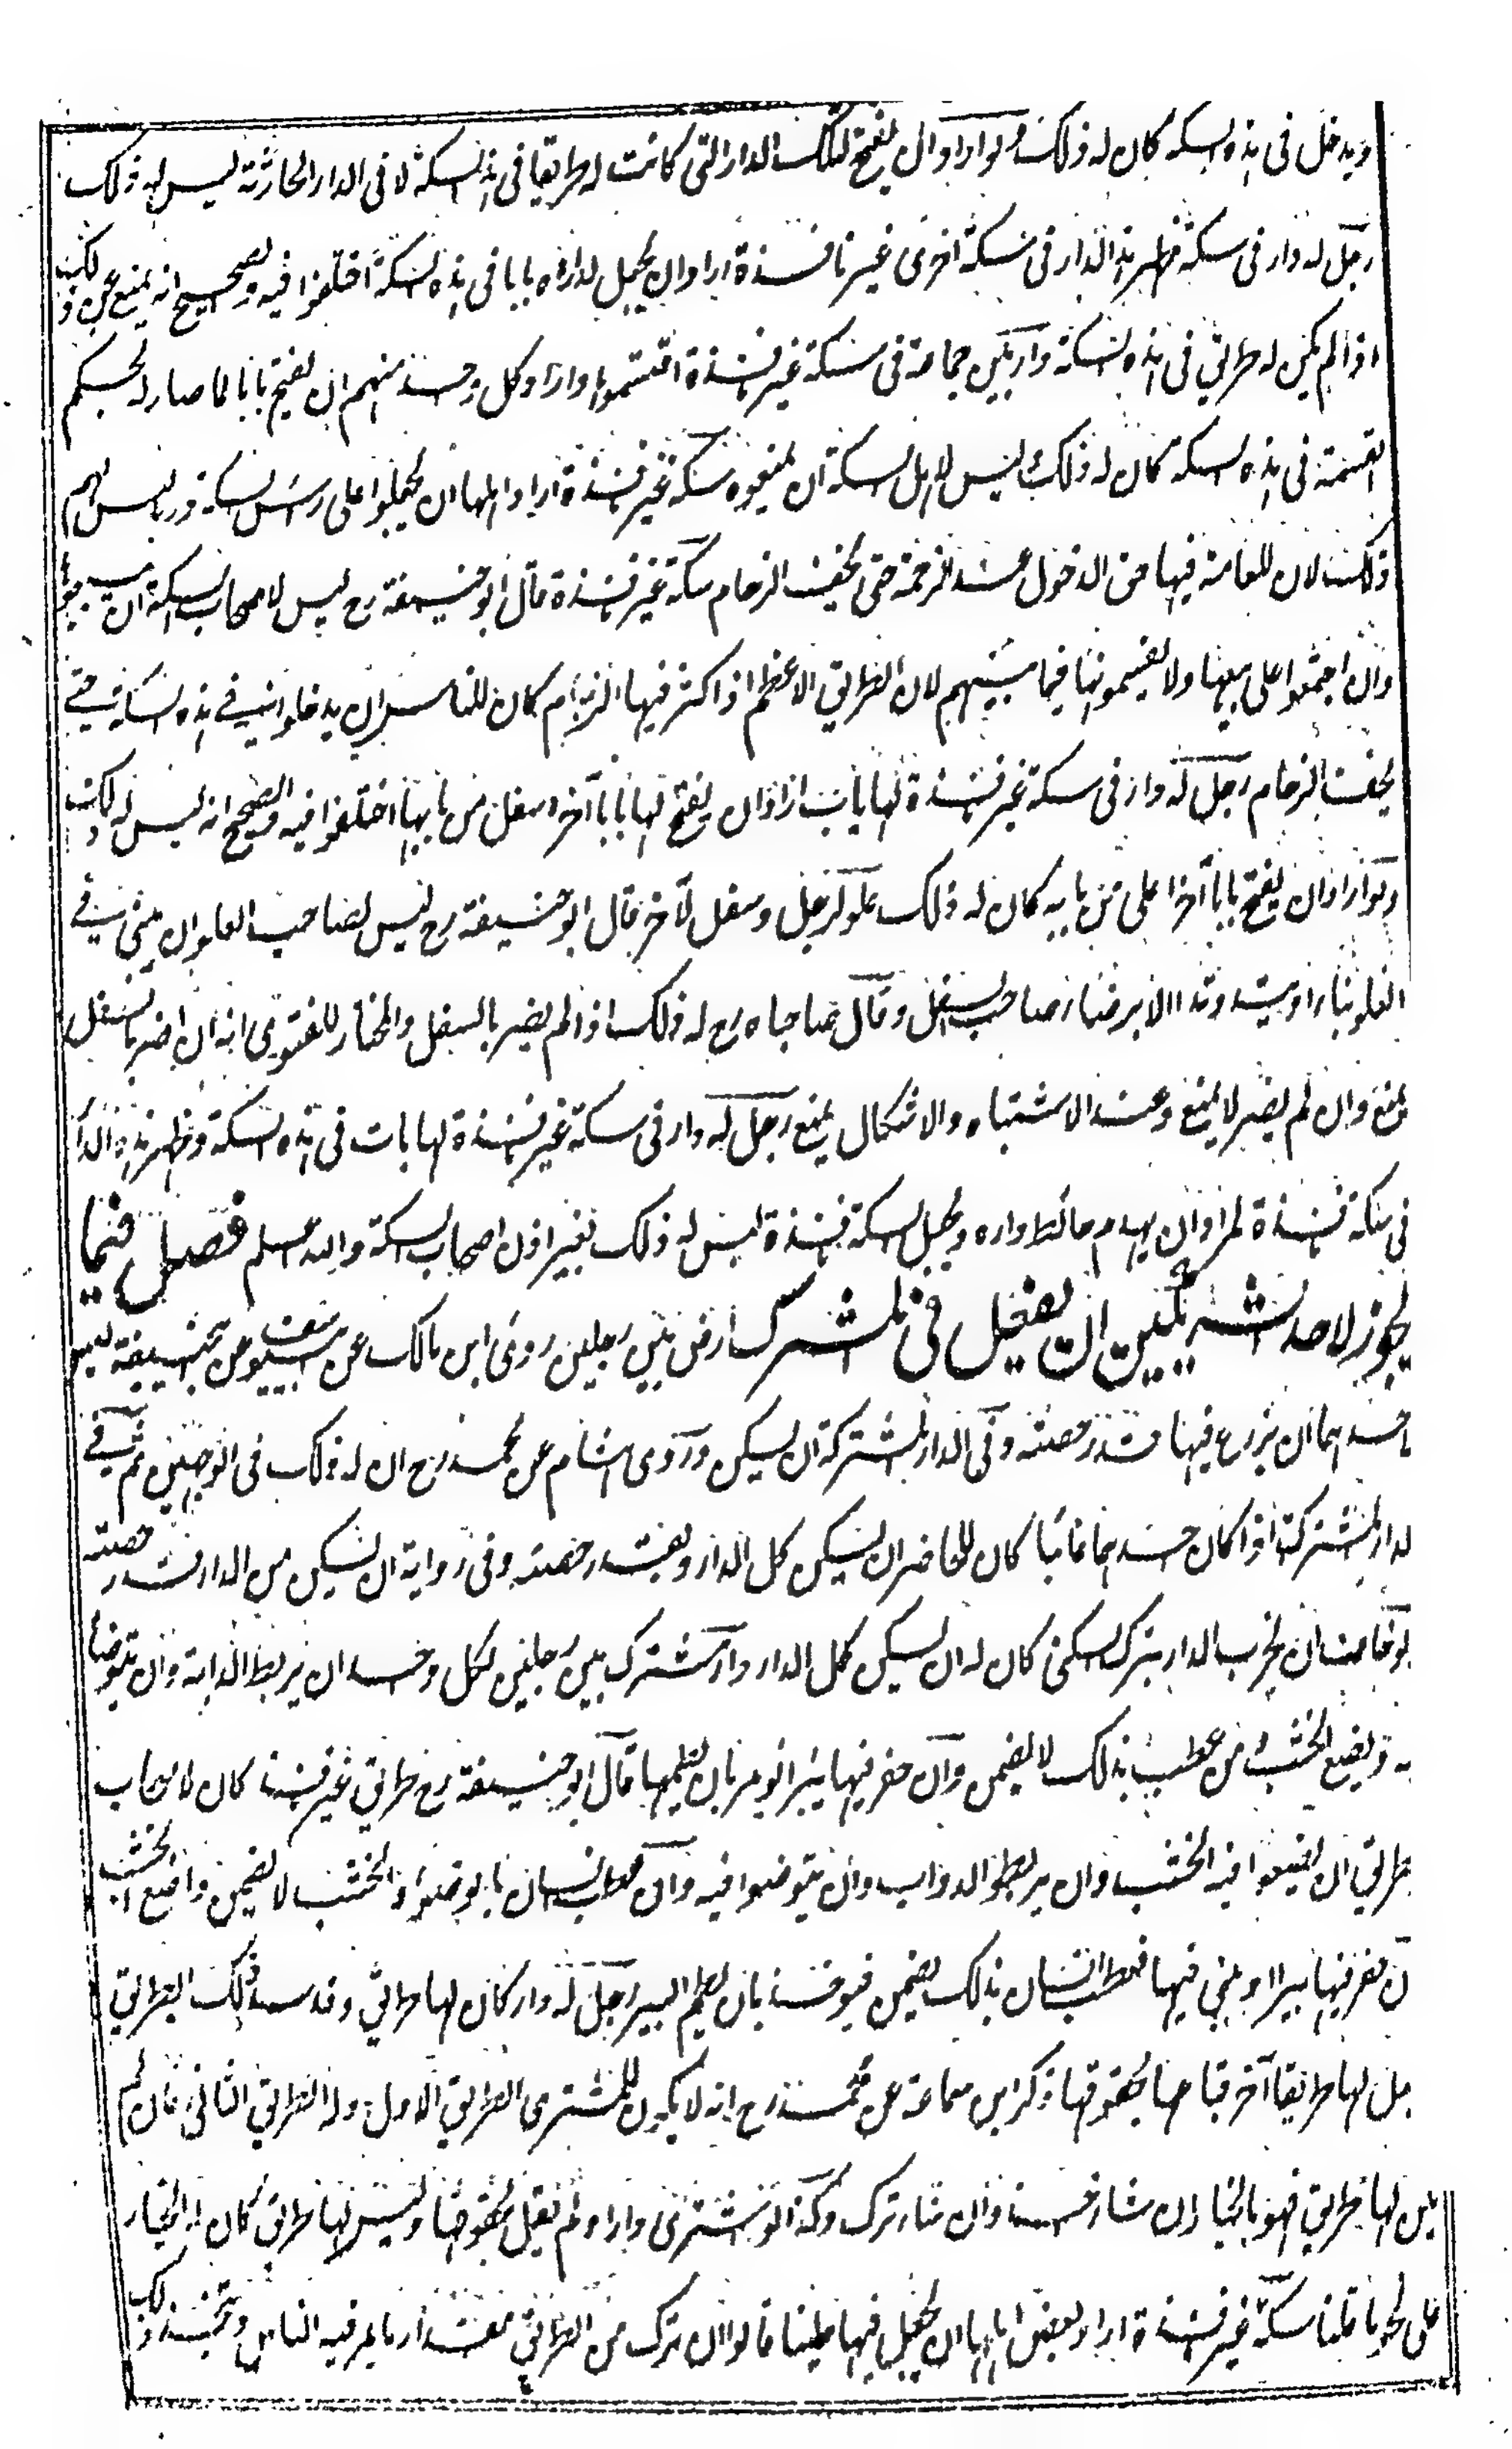 ويدخل فى هذه السكة كان له ذلك ولو اراد ان يفتح لتلك الدار التى كانت له طريقا فى هذه السكة لا فى الدار الحادثة ليس له ذلك
رجل له دار فى سكة ظهر هذه الدار فى سكة اخرى غير نافذة اراد ان يجعل لداره بابا فى هذه السكة اختلفوا فيه والصحيح انه يمنع عن ذلك
اذا لم يكن له طريق فى هذه السكة دار بين جماعة فى سكة غير نافذة اقتسموا دارا وكل واحد منهم ان يفتح بابا لما صار له بحكم
القسمة فى هذه السكة كان له ذلك ليس لاهل السكة ان يمنعوه سكة غير نافذة اراد اهلها ان يجعلوا على رأس السكة دربا ليس لهم
ذلك لان للعامة فيها حق الدخول عند الزحمة حتى يخف الزحام سكة غير نافذة قال ابو حنيفة رح ليس لاصحاب السكة ان يبيعوا
وان اجتمعوا على بيعها ولا يقسمونها فيما بينهم لان الطريق الاعظم اذا كثر فيها الزحام كان للناس ان يدخلوا فى هذه السكة حتى
يخف الزحام رجل له دار فى سكة غير نافذة لها باب اراد ان يفتح لها بابا آخر اسفل من بابها اختلفوا فيه والصحيح انه ليس له ذلك
ولو اراد ان يفتح بابا آخر اعلى من بابه كان له ذلك علو لرجل وسفل لآخر قال ابو حنيفة رح ليس لصاحب العلو ان يبنى فى
العلو بناء او يتد وتدا الا برضا صاحب السفل وقال صاحباه رح له ذلك اذا لم يضر بالسفل والمختار للفتوى انه ان اضر بالسفل
يمنع وان لم يضر لا يمنع وعند الاشتباه والاشكال يمنع رجل له دار فى سكة غير نافذة لها باب فى هذه السكة وظهر هذه الدار
فى سكة نافذة اراد ان يهدم حائط داره ويجعل السكة نافذة ليس له ذلك بغير اذن اصحاب السكة والله اعلم فصل فيما
يجوز لاحد الشريكين ان يفعل فى المشترك ارض بين رجلين روى ابن مالك عن ابى يوسف عن ابى حنيفة ليس
لاحدهما ان يزرع فيها قدر حصته وفى الدار المشتركة ان يسكن وروى هشام عن محمد رح ان له ذلك فى الوجهين ثم فى
لدار المشتركة اذا كان احدهما غائبا كان للحاضر ان يسكن كل الدار وبقدر حصته وفى رواية ان يسكن من الدار قدر حصته
لو خاف ان يخرب الدار بترك السكنى كان له ان يسكن كل الدار دار مشترك بين رجلين لكل واحد ان يربط الدابة وان يتوضأ
به ويضع الخشب من عطب بذلك لا يضمن وان حفر فيها بئرا يؤمر بان يطمها قال ابو حنيفة رح طريق غير نافذ كان لاصحاب
طريق ان يضعوا فيه الخشب وان يربطوا الدواب وان يتوضوا فيه وان عطب انسان بالوضوء والخشب لا يضمن واضع الخشب
ن حفر فيها بيرا او بنى فيها فعطب انسان بذلك يضمن فيوخذ بان يطم البير رجل له دار كان لها طريق وقد سد ذلك الطريق
جعل لها طريقا آخر فباعها بحقوقها ذكر ابن سماعة عن محمد رح انه لا يكون للمشترى الطريق الاول وله الطريق الثانى فان لم
يكن لها طريق فهو بالخيار ان شاء اخذ وان شاء ترك وكذا لو اشترى دارا ولم يقل بحقوقها وليس لها طريق كان له الخيار
على نحو ما قلنا سكة غير نافذة اراد بعض اهلها ان يجعل فيها طينا قالوا ان ترك من الطريق مقدار ما يمر فيه الناس ويتخذ ذلك